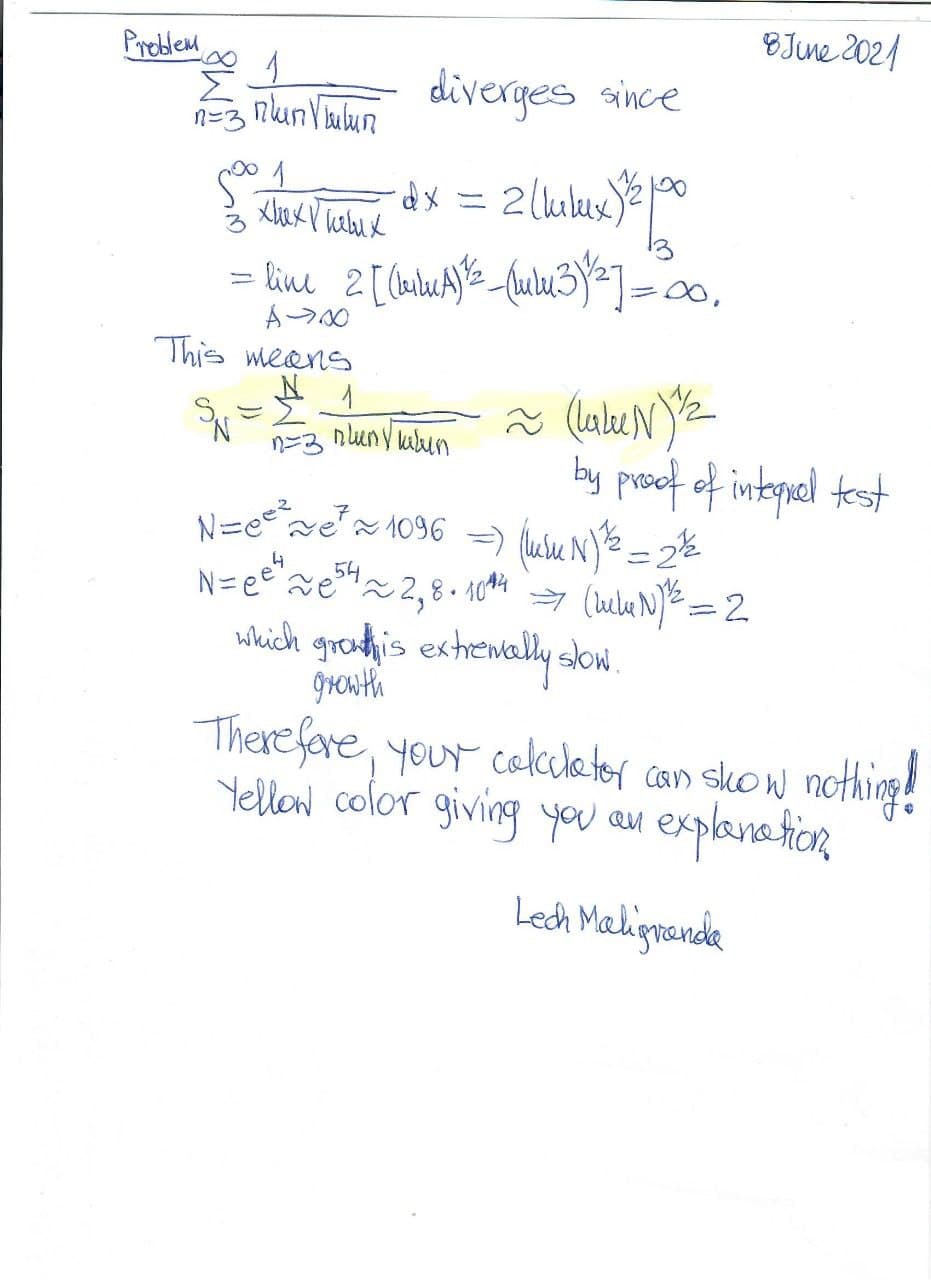 Problem
8 June 2021
∞ ∑ n=3 1/(n ln n √(ln ln n)) diverges since
∫₃^∞ 1/(x ln x √(ln ln x)) dx = 2(ln ln x)^½ |₃^∞
= lim A→∞ 2[(ln ln A)^½ - (ln ln 3)^½] = ∞.
This means
S_N = N ∑ n=3 1/(n ln n √(ln ln n)) ≈ (ln ln N)^½
by proof of integral test
N = e^e^2 ≈ e^7 ≈ 1096 ⇒ (ln ln N)^½ = 2^½
N = e^e^4 ≈ e^54 ≈ 2,8 · 10^44 ⇒ (ln ln N)^½ = 2
which growth is extremally slow.
growth
Therefore, your calculator can show nothing!
Yellow color giving you an explanation.
Lech Maligranda